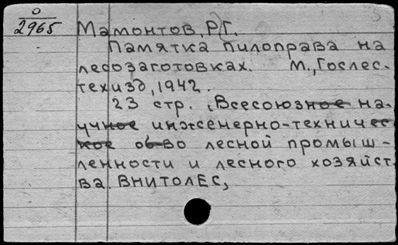 0
2965
Мамонтов, Р.Г.
Памятка пилоправа на
лесозаготовках. М., Гослес-
техизд, 1942.
23 стр. (Всесоюзное на-
учное инженерно-техничес-
кое об-во лесной промыш-
ленности и лесного хозяйст-
ва. ВНИТОЛЕС,